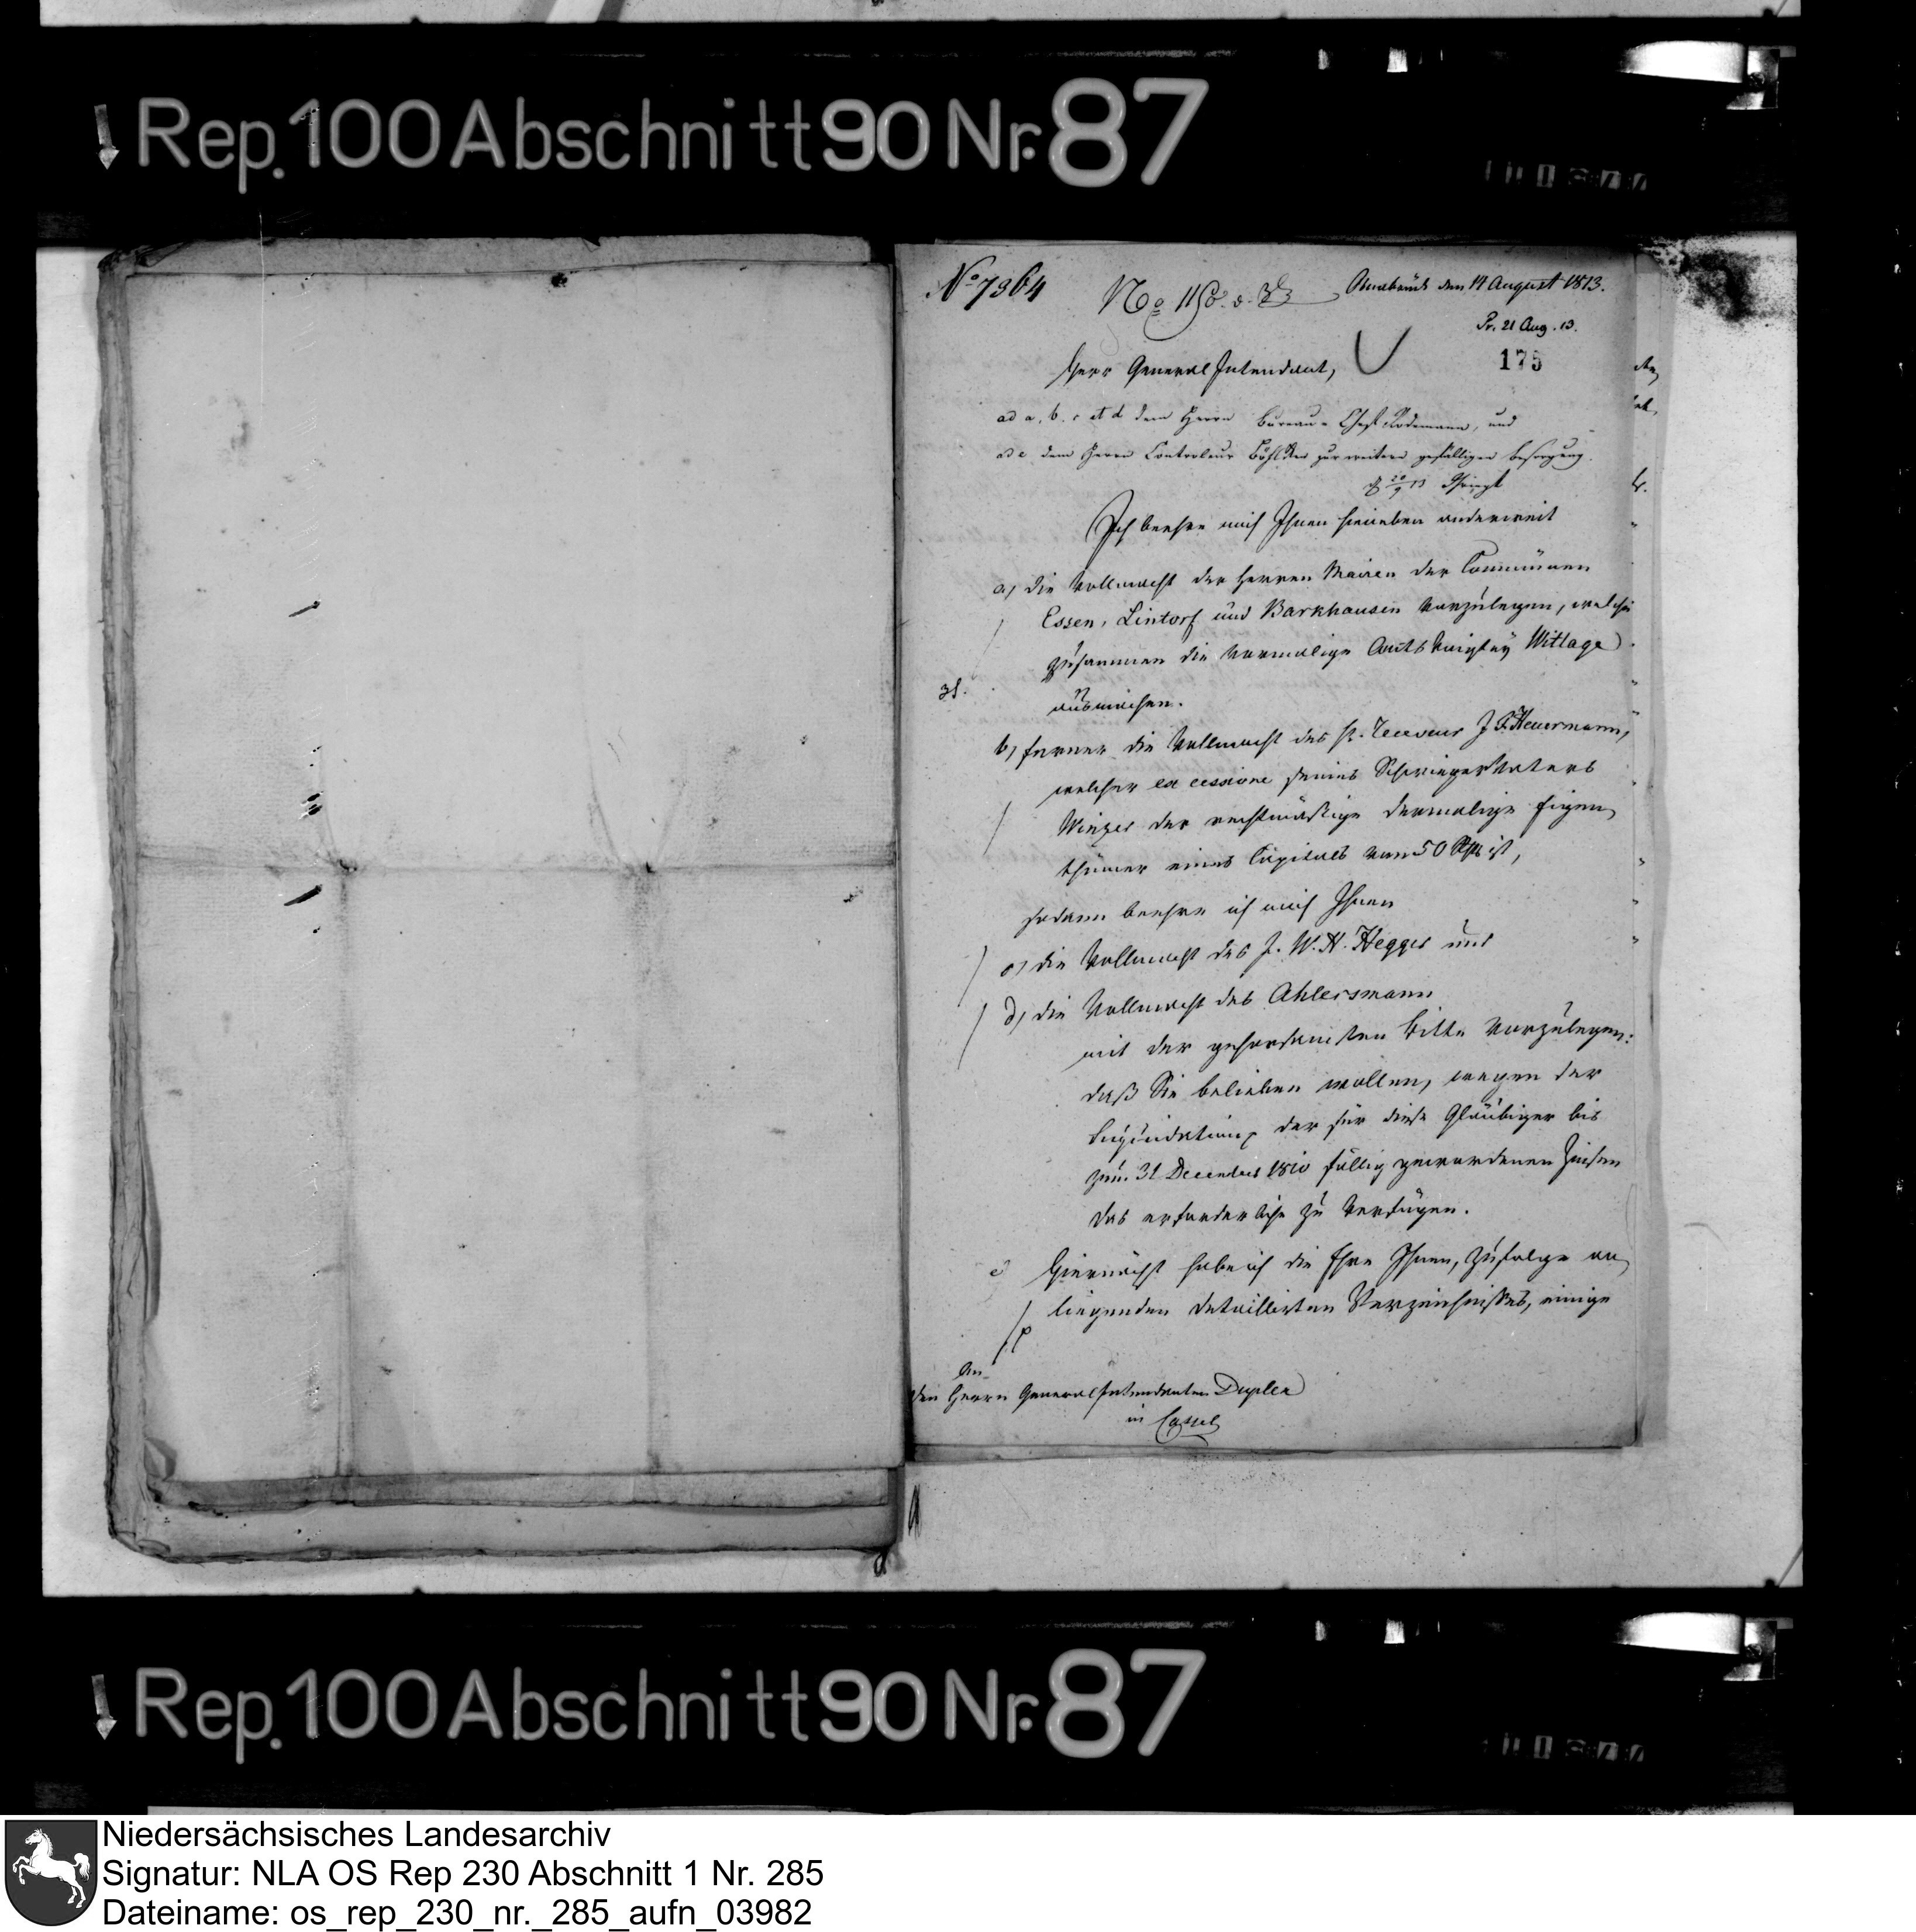 Rep. 100 Abschnitt 90 Nr. 87
No 7964
Osnabrück den 14 August 1813.
Pr. 21 Aug. 13.
175
Herr General Intendant,
ad a, b, c et d dem Herrn Bureau-Chef Rodemann, und
ad e dem Herrn Controleur zur weitern gefälligen Besorgung.
Ich beehre mich Ihnen hieneben anderweit
a, die Vollmacht der Herren Mairen der Communen
Essen, Lintorf und Barkhausen vorzulegen, welche
zusammen die vormalige Amts Voigtey Wittlage
ausmachen.
b, ferner die Vollmacht des H. Receveur J. F. Heuermann,
welcher ex cessione seines Schwieger Vaters
der rechtmäßige dermalige Eigen
thümer eines Capitals von 50 ist,
sodann beehre ich mich Ihnen
c, die Vollmacht des J. W. H. Hegger und
d, die Vollmacht des Ahlersmann
mit der gehorsamsten Bitte vorzulegen:
daß Sie belieben wollen, wegen der
Liquidation der für diese Gläubiger bis
zum 31 December 1810 fällig gewordenen Zinsen
das erforderliche zu verfügen.
e Hiernächst habe ich die Ehre Ihnen, zufolge an
liegenden detaillirten Verzeichnisses, einige
An
den Herrn General Intendanten Duplea
in Cassel
Rep. 100 Abschnitt 90 Nr. 87
Niedersächsisches Landesarchiv
Signatur: NLA OS Rep 230 Abschnitt 1 Nr. 285
Dateiname: os_rep_230_nr._285_aufn_03982